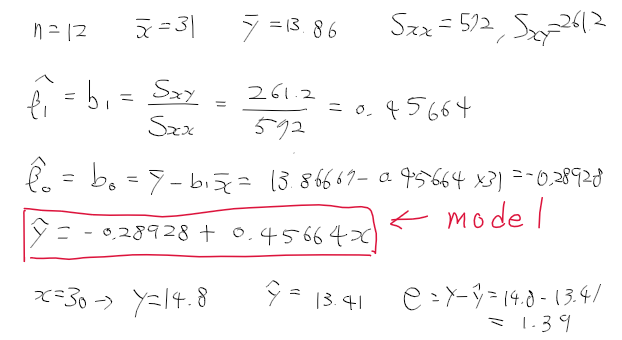 n=12 x̄=31 ȳ=13.86 Sxx=572, Sxy=261.2
β̂₁ = b₁ = Sxy/Sxx = 261.2/572 = 0.45664
β̂₀ = b₀ = ȳ-b₁x̄ = 13.86667-0.45664×31=-0.28928
ŷ = -0.28928 + 0.45664x ← model
x=30→ y=14.8 ŷ= 13.41 e=y-ŷ=14.8-13.41
= 1.39